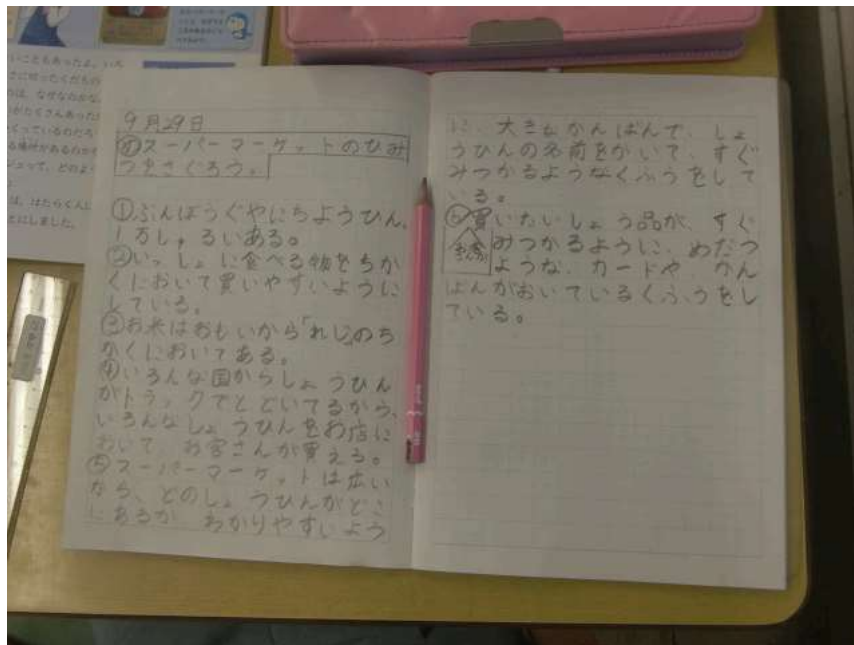 いこともあったよ。いろ
9月29日
めスーパーマーケットのひみ
つをさぐろう。
①ぶんぼうぐやにちようひん、
1万しゅるいある。
②いっしょに食べる物をちか
くにおいて買いやすいように
している。
③お米はおもいから「れじ」のち
かくにおいてある。
④いろんな国からしょうひん
がトラックでとどいてるから、
いろんなしょうひんをお店に
おいて、お客さんが買える。
⑤スーパーマーケットは広い
から、どのしょうひんがどこ
にあるか、わかりやすいよう
に、大きなかんばんで、しょ
うひんの名前をかいて、すぐ
みつかるようなくふうをして
いる。
⑥買いたいしょう品が、すぐ
みつかるように、めだつ
ような、カードや、かん
ばんがおいているくふうをし
ている。